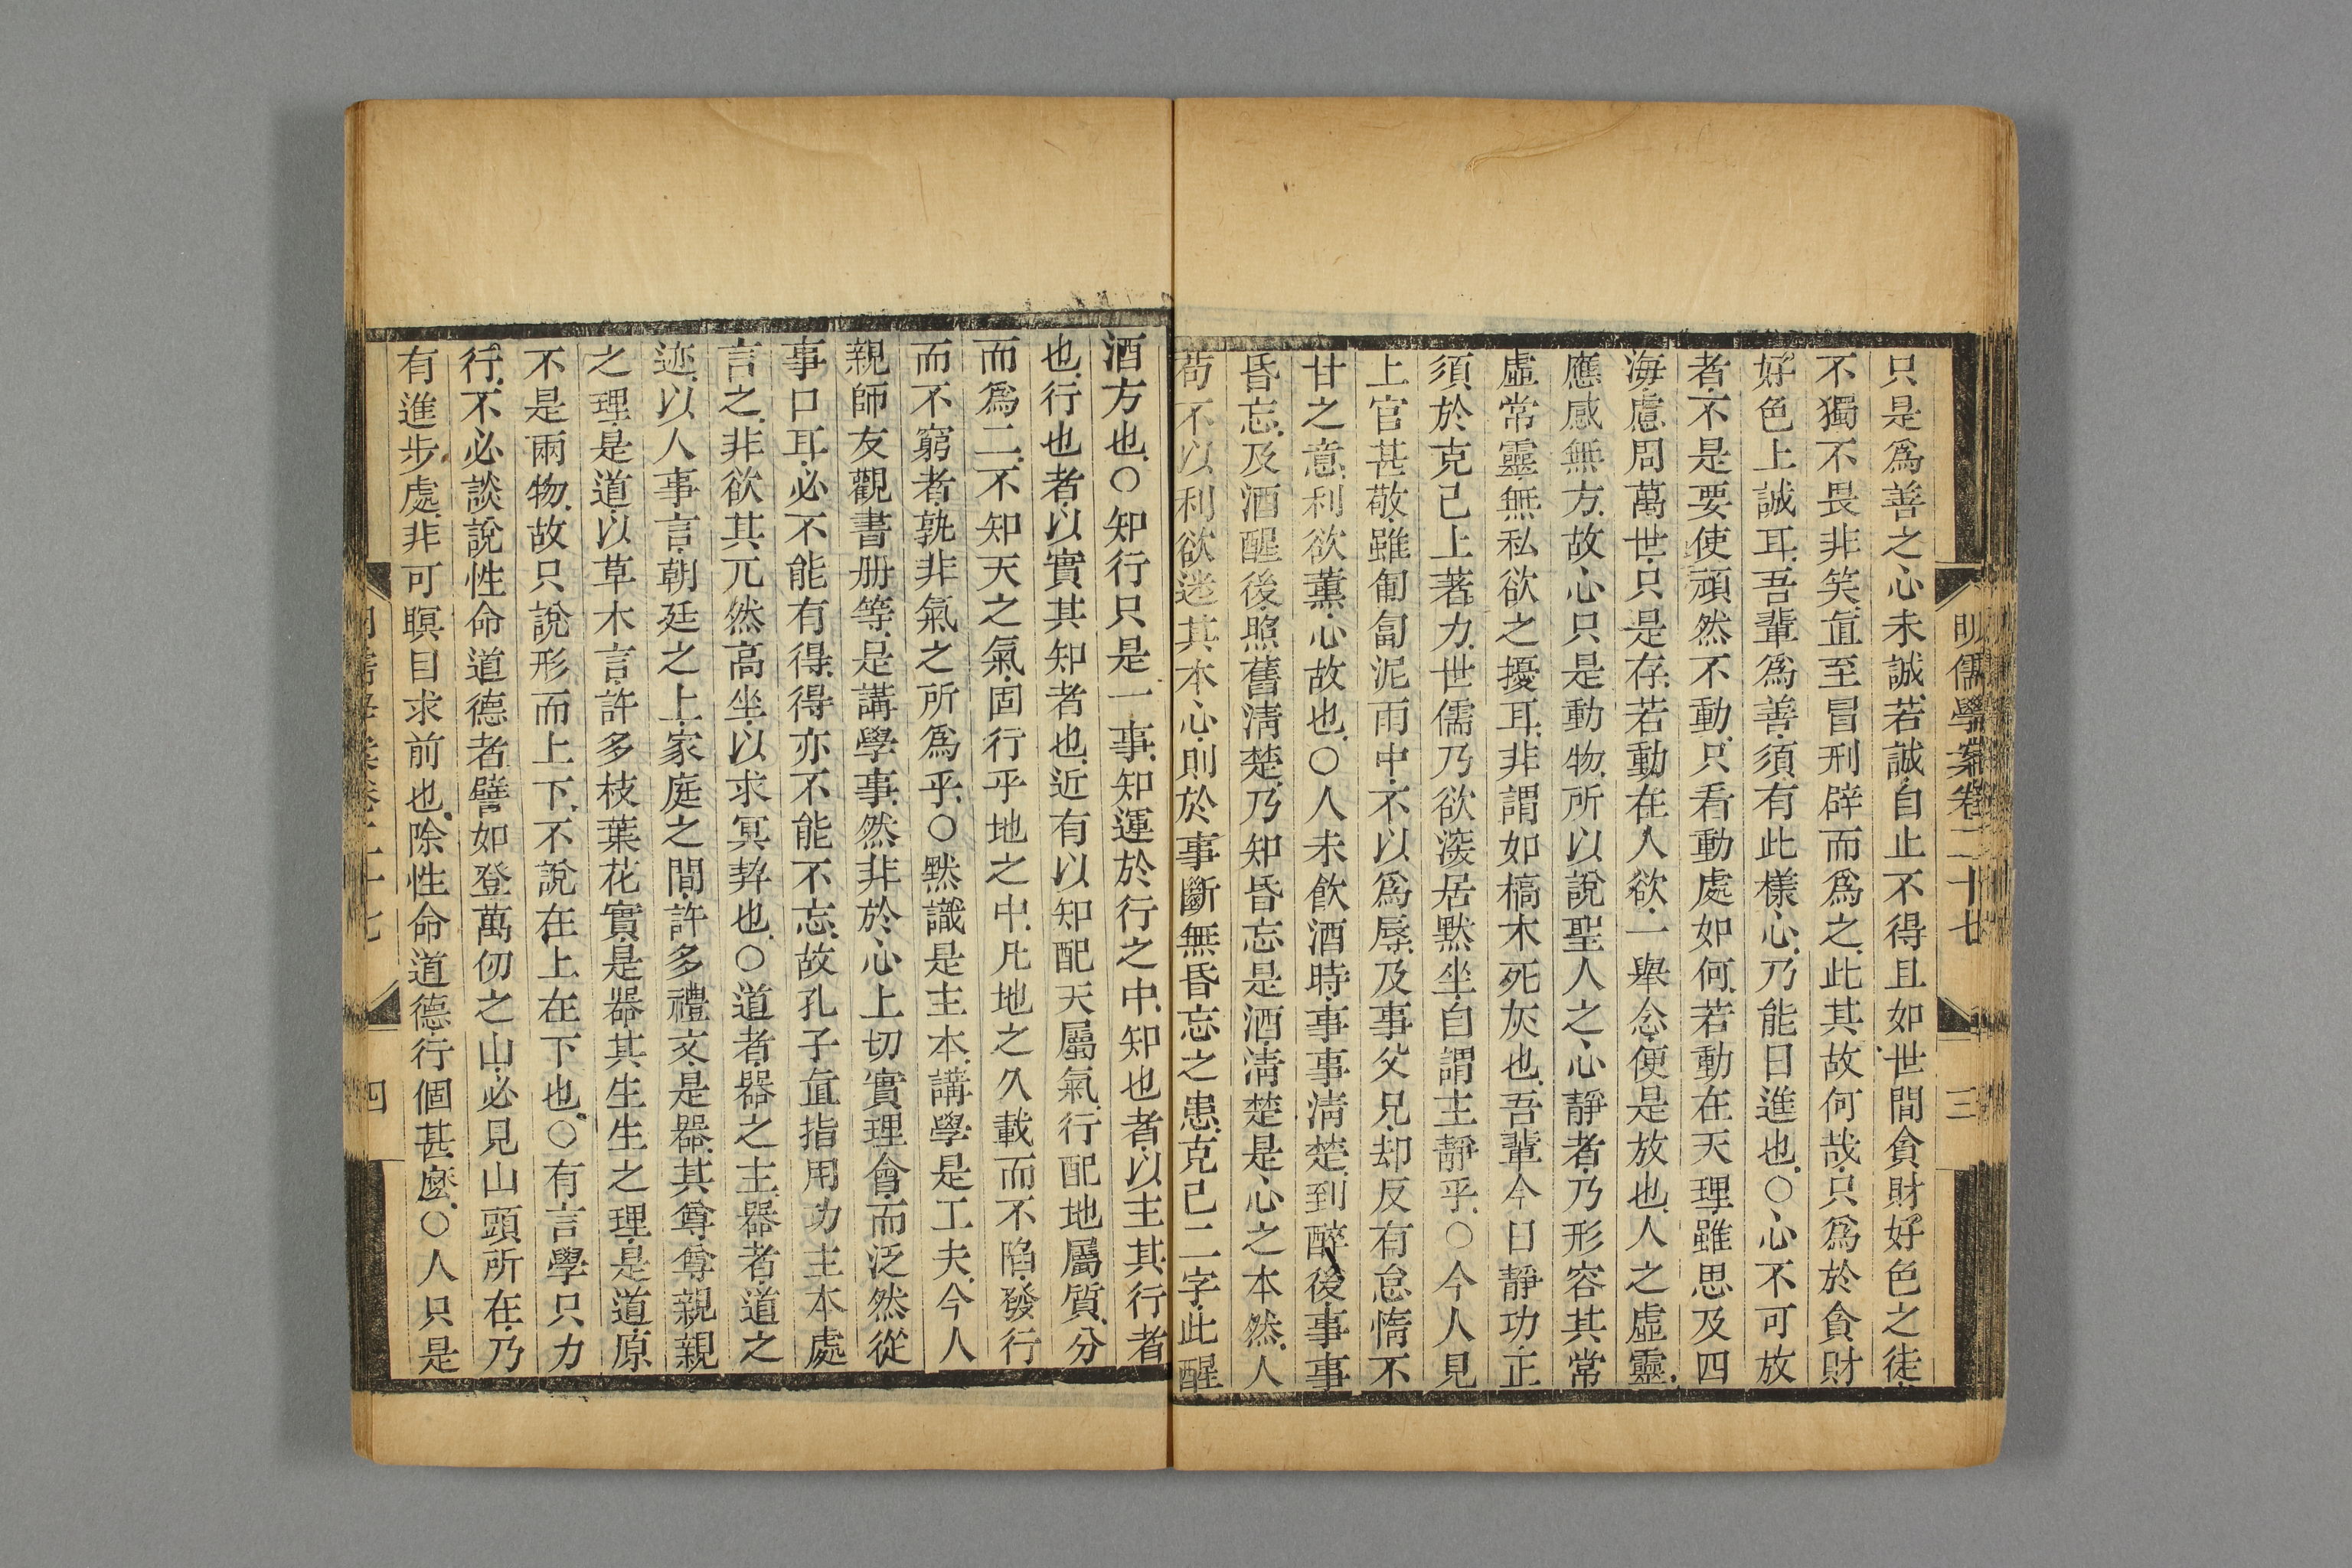 明儒學案卷二十七
三
只是爲善之心未誠若誠自止不得且如世間貪財好色之徒
不獨不畏非笑直至冒刑辟而爲之此其故何哉只爲於貪財
好色上誠耳吾輩爲善須有此樣心乃能日進也○心不可放
者不是要使頑然不動只看動處如何若動在天理雖思及四
海慮周萬世只是存若動在人欲一舉念便是放也人之虛靈
應感無方故心只是動物所以說聖人之心靜者乃形容其常
虛常靈無私欲之擾耳非謂如槁木死灰也吾輩今日靜功正
須於克己上著力世儒乃欲深居默坐自謂主靜乎○今人見
上官甚敬雖匍匐泥雨中不以爲辱及事父兄却反有怠惰不
甘之意利欲薰心故也○人未飲酒時事事淸楚到醉後事事
昏忘及酒醒後照舊淸楚乃知昏忘是酒淸楚是心之本然人
苟不以利欲迷其本心則於事斷無昏忘之患克己二字此醒
酒方也○知行只是一事知運於行之中知也者以主其行者
也行也者以實其知者也近有以知配天屬氣行配地屬質分
而爲二不知天之氣固行乎地之中凡地之久載而不陷發行
而不窮者孰非氣之所爲乎○默識是主本講學是工夫今人
親師友觀書册等是講學事然非於心上切實理會而泛然從
事口耳必不能有得得亦不能不忘故孔子直指用功主本處
言之非欲其兀然高坐以求冥契也○道者器之主器者道之
迹以人事言朝廷之上家庭之間許多禮文是器其尊尊親親
之理是道以草木言許多枝葉花實是器其生生之理是道原
不是兩物故只說形而上下不說在上在下也○有言學只力
行不必談說性命道德者譬如登萬仞之山必見山頭所在乃
有進步處非可瞑目求前也除性命道德行個甚麼○人只是
四